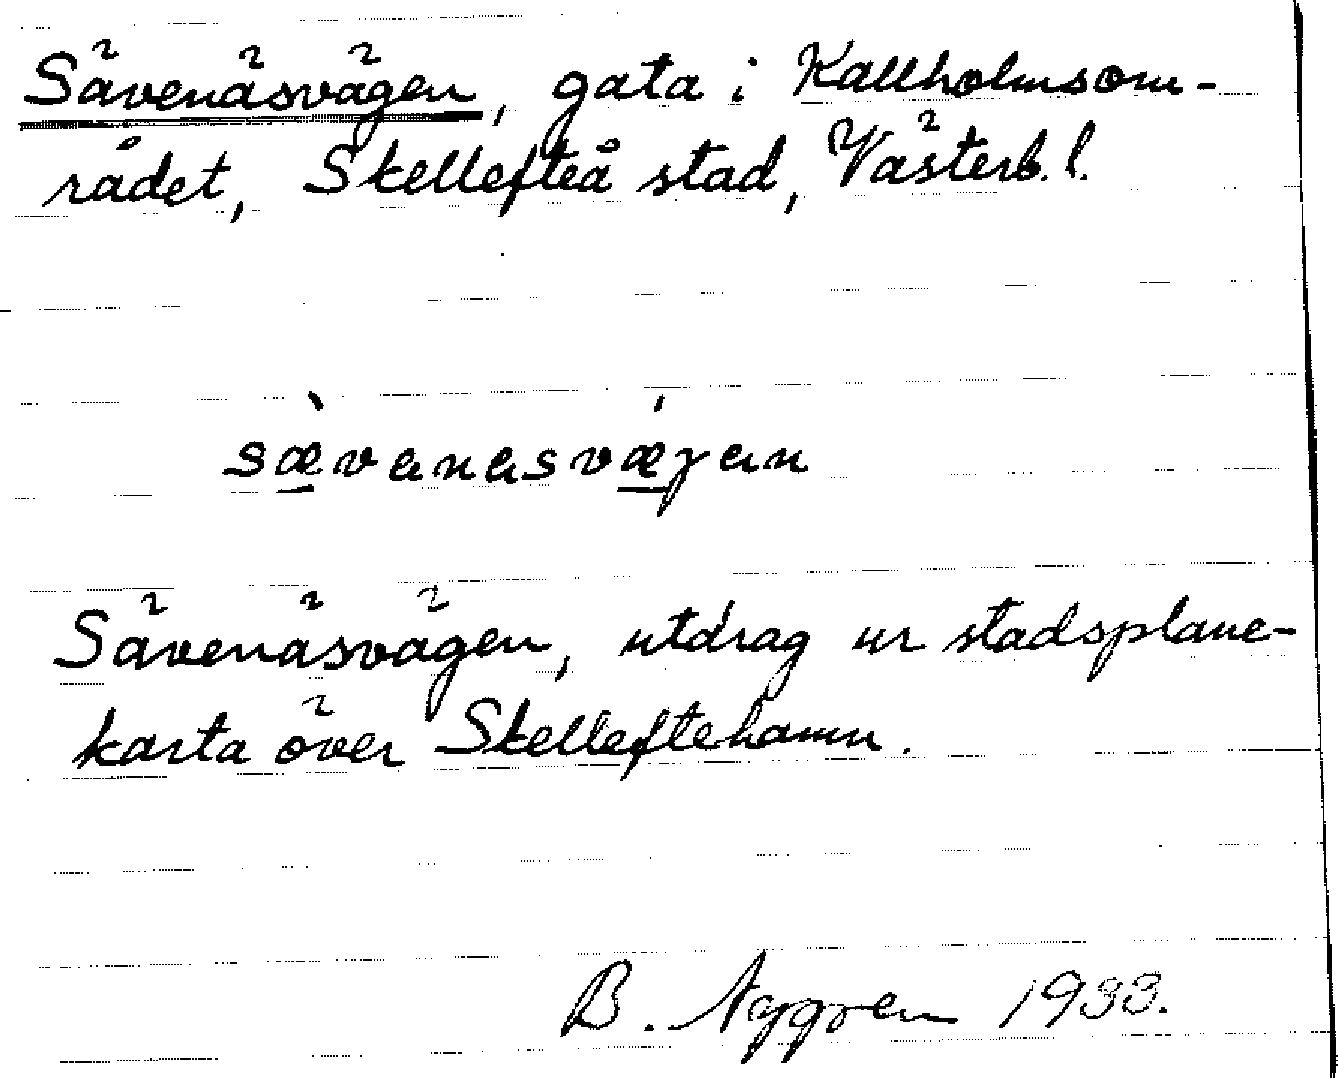 Sävenäsvägen, gata i Kallholmsom-
rådet, Skellefteå stad, Västerb. l.
sæ̀venæsvǽgen
Sävenäsvägen, utdrag ur stadsplane-
karta över Skelleftehamn.
B. Nygren 1933.